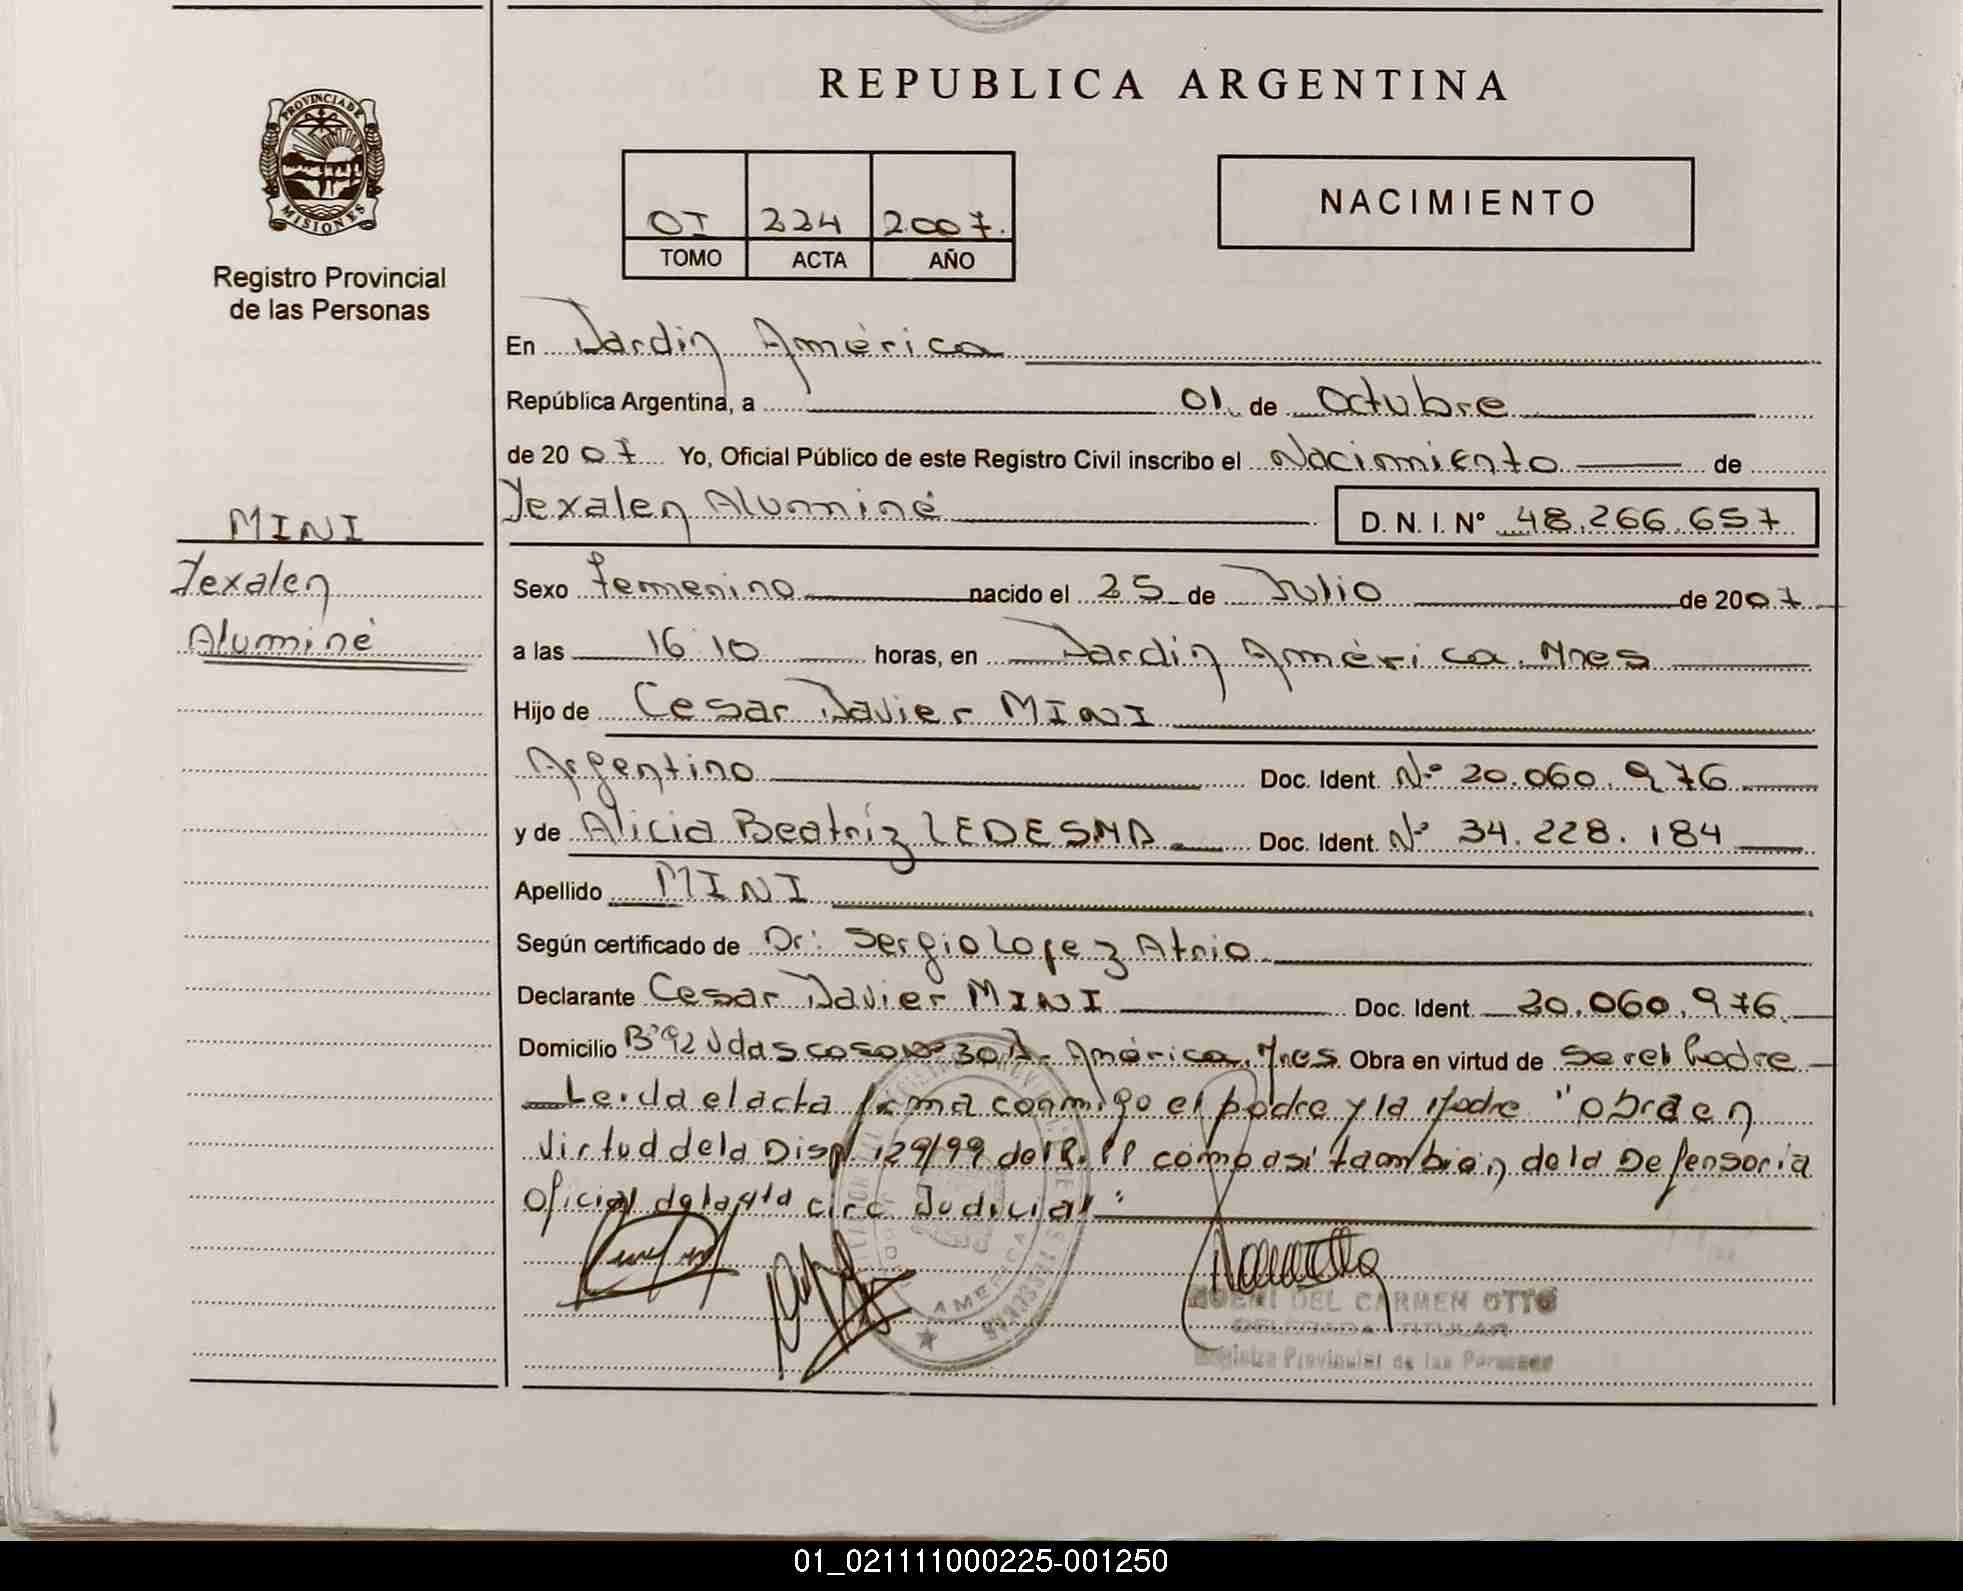 REPUBLICA ARGENTINA
PROVINCIA DE
MISIONES
Registro Provincial
de las Personas
OI 224 2007.
TOMO ACTA AÑO
NACIMIENTO
En Jardín América
República Argentina, a 01 de Octubre
de 2007 Yo, Oficial Público de este Registro Civil inscribo el Nacimiento de
Yexalen Aluminé D. N. I. Nº 48.266.657
MINI
Yexalen
Aluminé
Sexo Femenino nacido el 25 de Julio de 2007
a las 16 10 horas, en Jardín América. Mnes
Hijo de Cesar Javier MINI
Argentino Doc. Ident. Nº 20.060.976
y de Alicia Beatríz LEDESMA Doc. Ident. Nº 34.228.184
Apellido MINI
Según certificado de Dr: Sergio Lopez Atrio
Declarante Cesar Javier MINI Doc. Ident. 20.060.976
Domicilio Bº 92 Vdas coso Nº 30 J. América. Mnes Obra en virtud de ser el Padre
Leida el acta firma conmigo el padre y la Madre "obra en
virtud de la Disp. 129/99 del R.PP como asi tambien de la Defensoria
Oficial de la 4ta circ Judicial"
AMERICA
NOEMI DEL CARMEN OTTO
DELEGADA TITULAR
Registro Provincial de las Personas
01_021111000225-001250